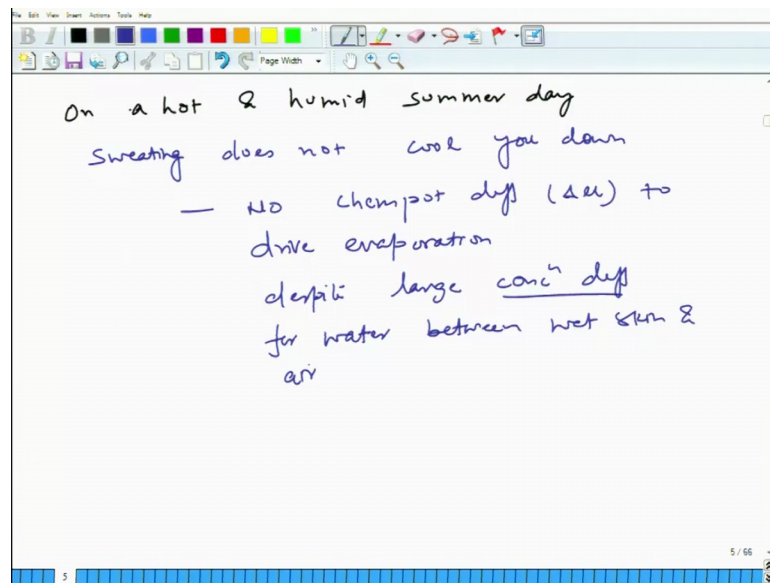 File Edit View Insert Actions Tools Help
B I
Page Width
On a hot & humid summer day
Sweating does not cool you down
— No chempot diff (Δμ) to
drive evaporation
despite large concⁿ diff
for water between wet skin &
air
5 / 66
5